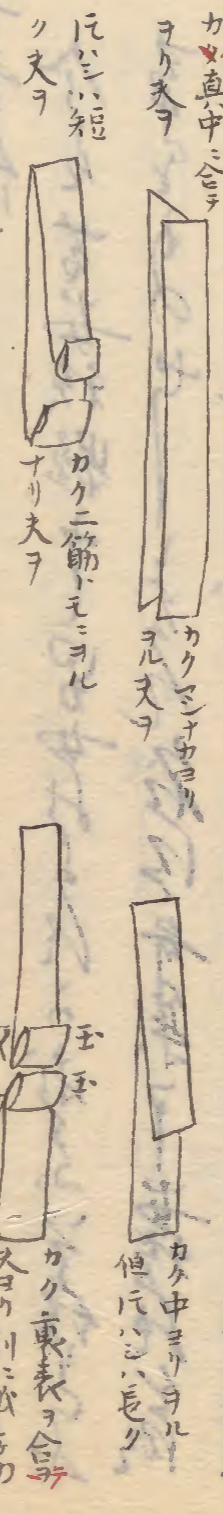 カク真中ニ合テ
ヲリ夫ヲ
カクマンナカヨリ
ヲル夫ヲ
カク中ヨリヲル
但片ハシハ長ク
片ハシハ短
ク夫ヲ
カク二筋トモニヲル
ナリ夫ヲ
玉
玉
カク裏表ヲ合テ